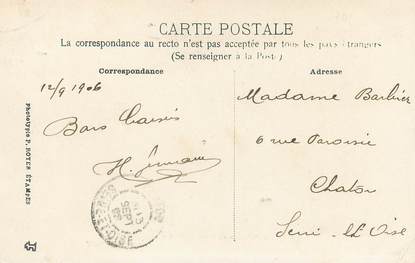 CARTE POSTALE
La correspondance au recto n'est pas acceptée par tous les pays étrangers
(Se renseigner à la Poste)
Correspondance
Adresse
12/9 1906
Bons Baisers
Madame Barbier
6 rue Paroisse
Chatou
Seine et Oise
Phototypie P. ROYER ÉTAMPES
SEPT